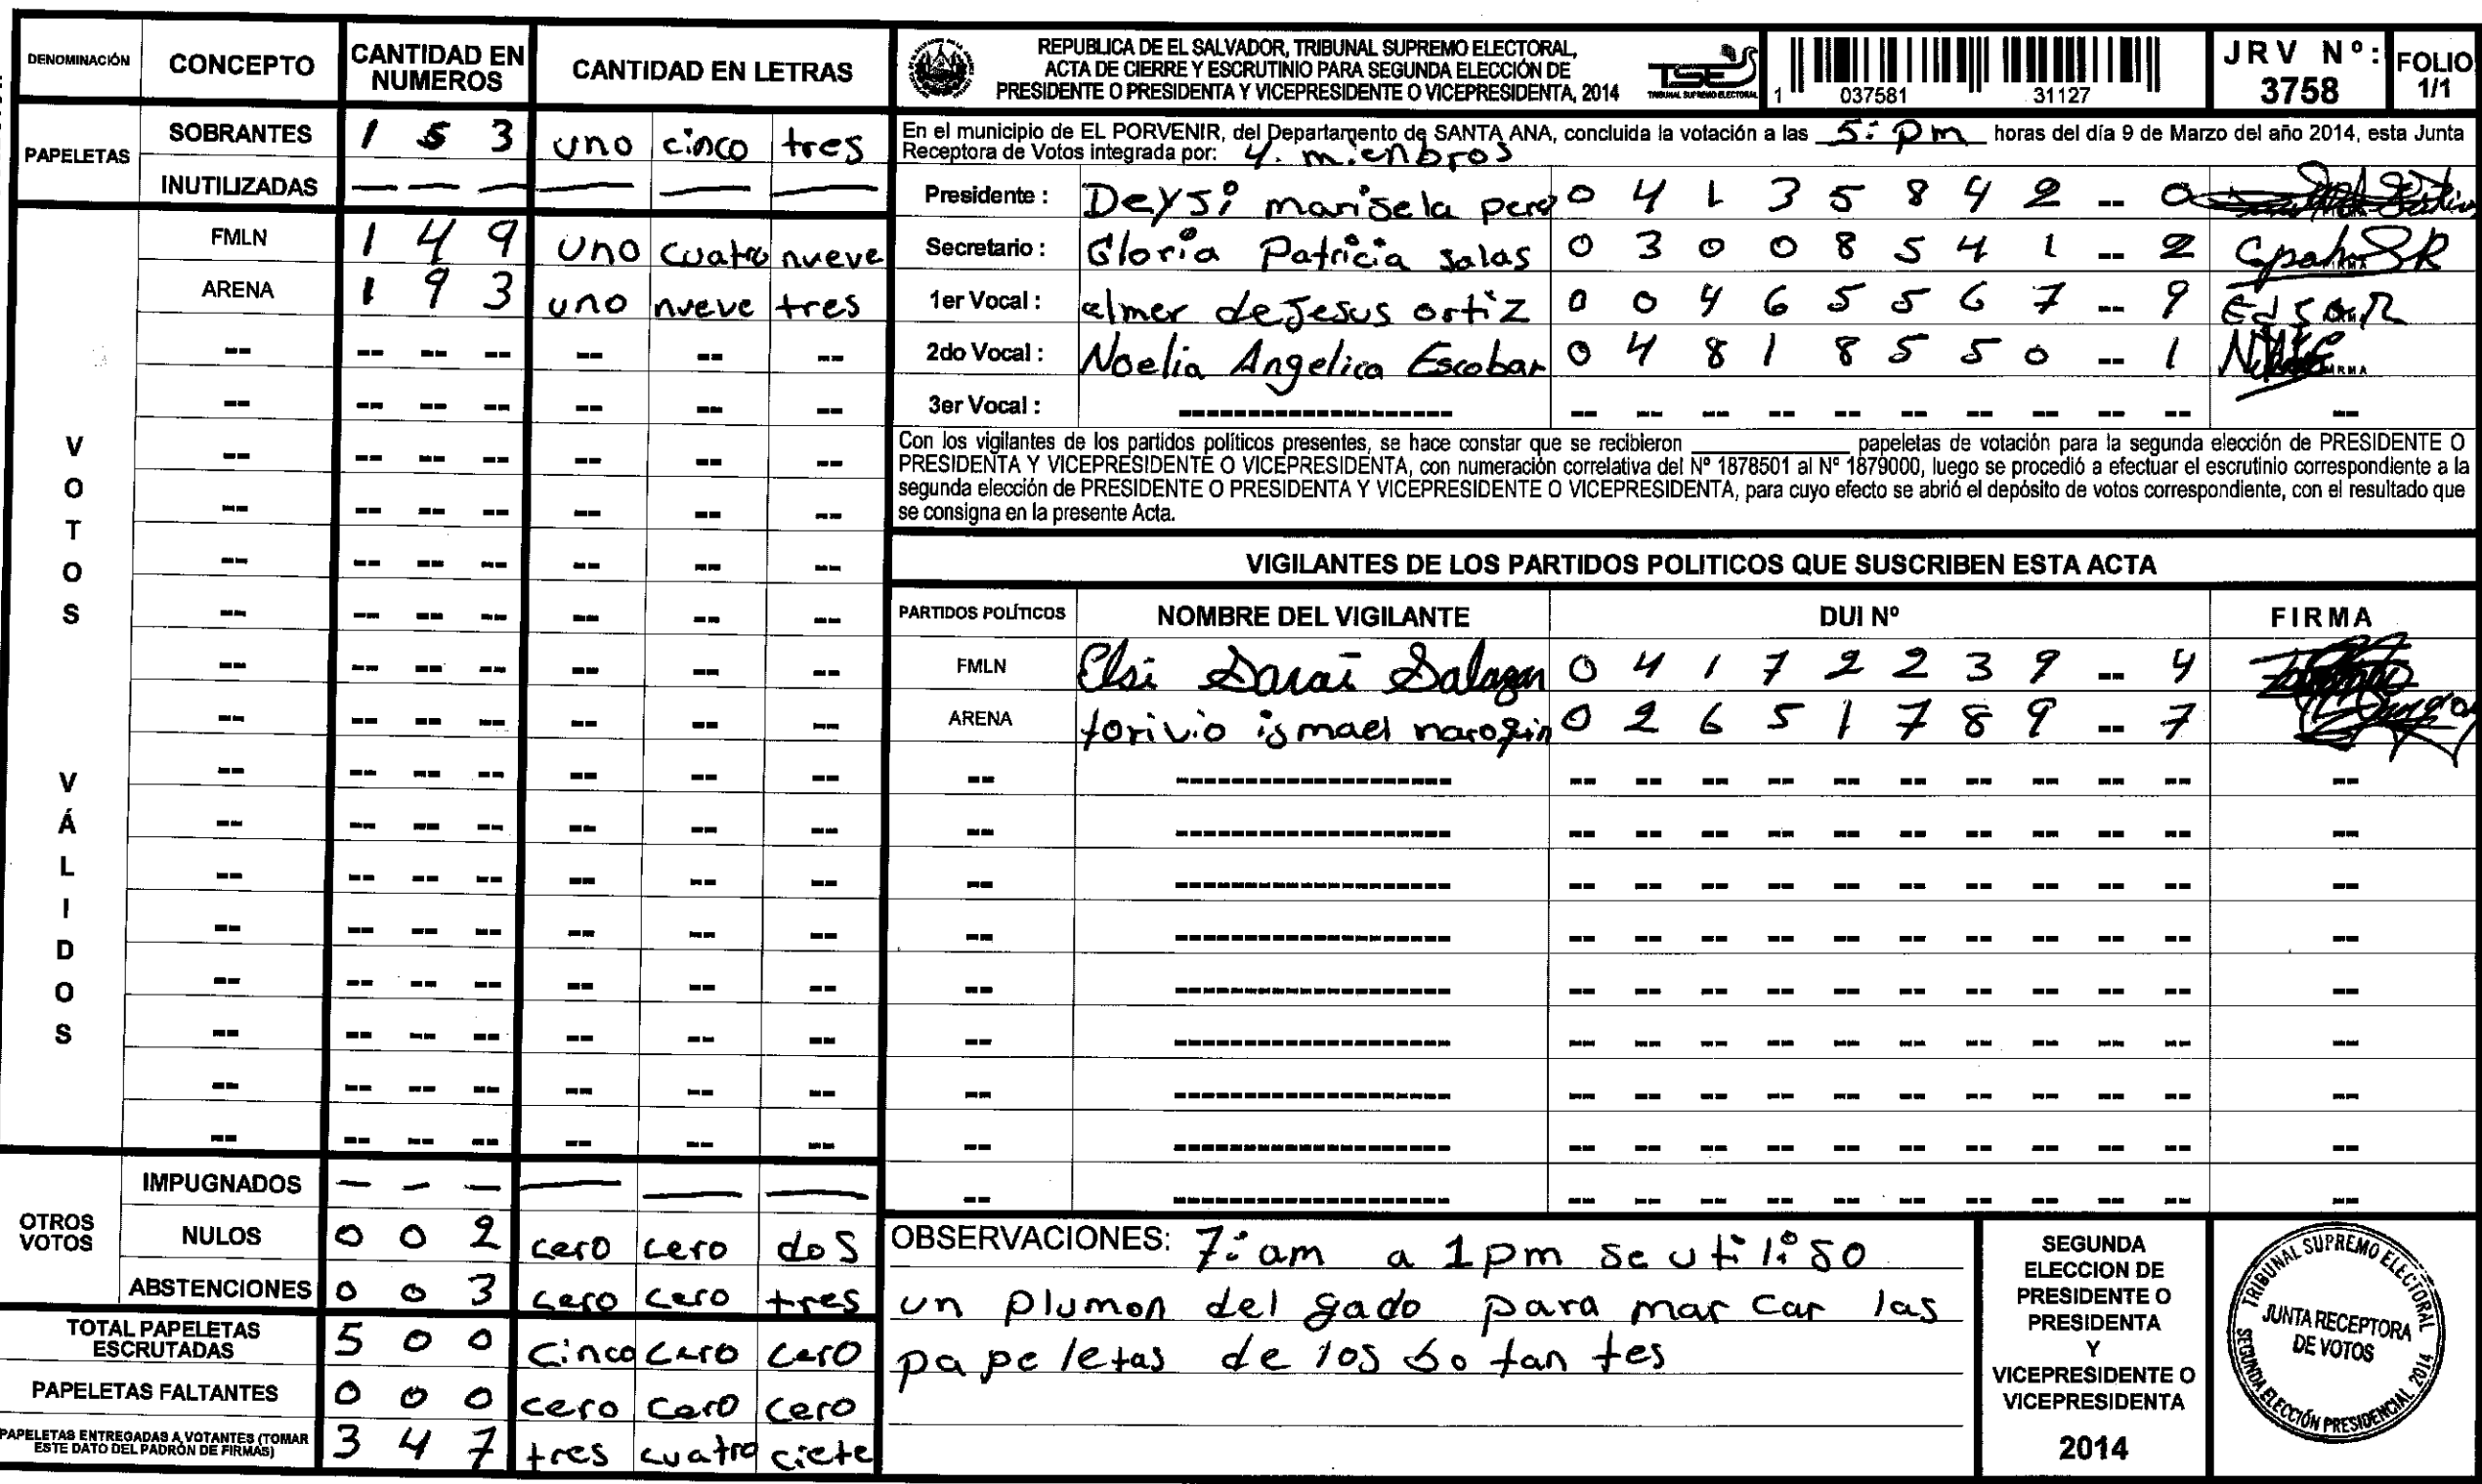 DENOMINACIÓN CONCEPTO CANTIDAD EN NUMEROS CANTIDAD EN LETRAS
PAPELETAS
SOBRANTES 1 5 3 uno cinco tres
INUTILIZADAS — — — — — —
VOTOS VÁLIDOS
FMLN 1 4 9 uno cuatro nueve
ARENA 1 9 3 uno nueve tres
OTROS VOTOS
IMPUGNADOS — — — — — —
NULOS 0 0 2 cero cero dos
ABSTENCIONES 0 0 3 cero cero tres
TOTAL PAPELETAS ESCRUTADAS 5 0 0 cinco cero cero
PAPELETAS FALTANTES 0 0 0 cero cero cero
PAPELETAS ENTREGADAS A VOTANTES (TOMAR ESTE DATO DEL PADRÓN DE FIRMAS) 3 4 7 tres cuatro ciete
REPUBLICA DE EL SALVADOR, TRIBUNAL SUPREMO ELECTORAL,
ACTA DE CIERRE Y ESCRUTINIO PARA SEGUNDA ELECCIÓN DE
PRESIDENTE O PRESIDENTA Y VICEPRESIDENTE O VICEPRESIDENTA, 2014
TSE
TRIBUNAL SUPREMO ELECTORAL
1 037581 31127
JRV Nº: 3758
FOLIO 1/1
En el municipio de EL PORVENIR, del Departamento de SANTA ANA, concluida la votación a las 5: pm horas del día 9 de Marzo del año 2014, esta Junta
Receptora de Votos integrada por: 4. mienbros
Presidente : Deysi marisela pere 0 4 1 3 5 8 4 2 -- 0
Secretario : Gloria Patricia salas 0 3 0 0 8 5 4 1 -- 2
1er Vocal : elmer de Jesus ortiz 0 0 4 6 5 5 6 7 -- 9
2do Vocal : Noelia Angelica Escobar 0 4 8 1 8 5 5 0 -- 1
3er Vocal :
Con los vigilantes de los partidos políticos presentes, se hace constar que se recibieron papeletas de votación para la segunda elección de PRESIDENTE O
PRESIDENTA Y VICEPRESIDENTE O VICEPRESIDENTA, con numeración correlativa del Nº 1878501 al Nº 1879000, luego se procedió a efectuar el escrutinio correspondiente a la
segunda elección de PRESIDENTE O PRESIDENTA Y VICEPRESIDENTE O VICEPRESIDENTA, para cuyo efecto se abrió el depósito de votos correspondiente, con el resultado que
se consigna en la presente Acta.
VIGILANTES DE LOS PARTIDOS POLITICOS QUE SUSCRIBEN ESTA ACTA
PARTIDOS POLÍTICOS NOMBRE DEL VIGILANTE DUI Nº FIRMA
FMLN Elsi Sarai Salazar 0 4 1 7 2 2 3 9 -- 4
ARENA torivio ismael 0 2 6 5 1 7 8 9 -- 7
OBSERVACIONES: 7: am a 1 pm se utiliso
un plumon del gado para mar car las
papeletas de los botantes
SEGUNDA
ELECCION DE
PRESIDENTE O
PRESIDENTA
Y
VICEPRESIDENTE O
VICEPRESIDENTA
2014
TRIBUNAL SUPREMO ELECTORAL
JUNTA RECEPTORA
DE VOTOS
SEGUNDA ELECCIÓN PRESIDENCIAL 2014